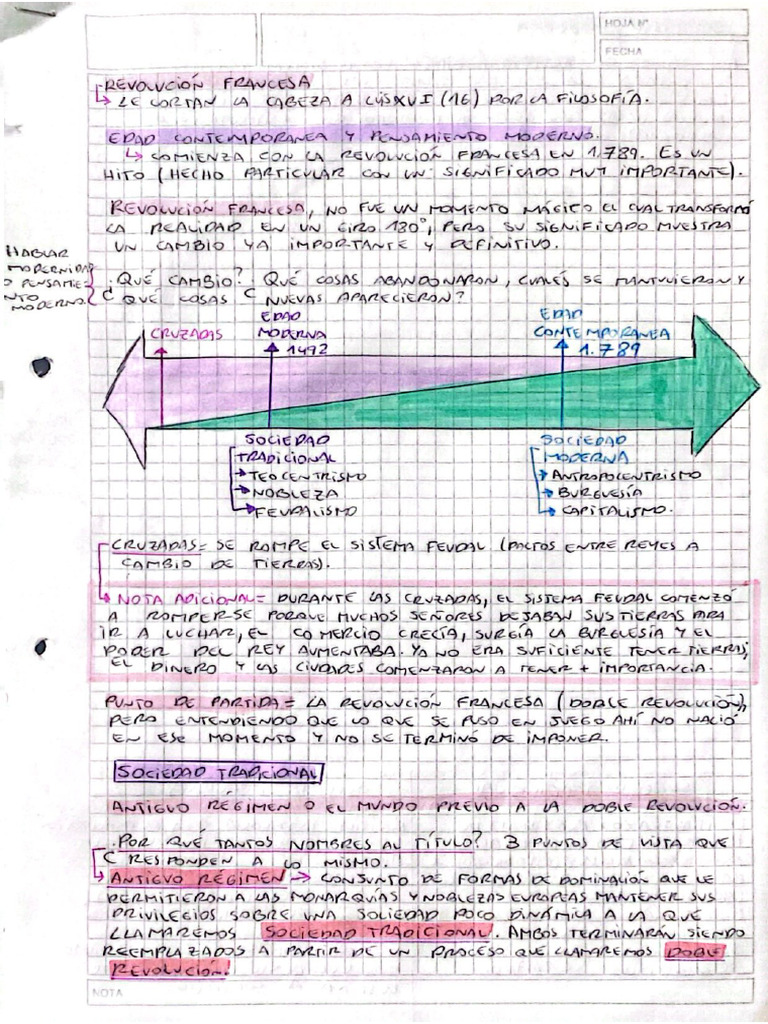 HOJA Nº
FECHA
REVOLUCIÓN FRANCESA
LE CORTAN LA CABEZA A LUIS XVI (16) POR LA FILOSOFÍA.
EDAD CONTEMPORANEA Y PENSAMIENTO MODERNO.
COMIENZA CON LA REVOLUCIÓN FRANCESA EN 1.789. ES UN
HITO (HECHO PARTICULAR CON UN SIGNIFICADO MUY IMPORTANTE).
REVOLUCIÓN FRANCESA, NO FUE UN MOMENTO MÁGICO EL CUAL TRANSFORMÓ
LA REALIDAD EN UN GIRO 180°, PERO SU SIGNIFICADO MUESTRA
UN CAMBIO YA IMPORTANTE Y DEFINITIVO.
HABLAR
MODERNIDAD
O PENSAMIE-
NTO
MODERNO
¿QUÉ CAMBIO? QUÉ COSAS ABANDONARON, CUALES SE MANTUVIERON Y
¿QUÉ COSAS NUEVAS APARECIERON?
CRUZADAS
EDAD
MODERNA
1492
EDAD
CONTEMPORANEA
1.789
SOCIEDAD
TRADICIONAL
TEOCENTRISMO
NOBLEZA
FEUDALISMO
SOCIEDAD
MODERNA
ANTROPOCENTRISMO
BURGUESÍA
CAPITALISMO.
CRUZADAS= SE ROMPE EL SISTEMA FEUDAL (PACTOS ENTRE REYES A
CAMBIO DE TIERRAS).
NOTA ADICIONAL= DURANTE LAS CRUZADAS, EL SISTEMA FEUDAL COMENZÓ
A ROMPERSE PORQUE MUCHOS SEÑORES DEJABAN SUS TIERRAS PARA
IR A LUCHAR, EL COMERCIO CRECÍA, SURGÍA LA BURGUESIA Y EL
PODER DEL REY AUMENTABA. YA NO ERA SUFICIENTE TENER TIERRAS,
EL DINERO Y LAS CIUDADES COMENZARON A TENER + IMPORTANCIA.
PUNTO DE PARTIDA= LA REVOLUCIÓN FRANCESA (DOBLE REVOLUCIÓN),
PERO ENTENDIENDO QUE LO QUE SE PUSO EN JUEGO AHÍ NO NACIÓ
EN ESE MOMENTO Y NO SE TERMINÓ DE IMPONER.
SOCIEDAD TRADICIONAL
ANTIGUO RÉGIMEN O EL MUNDO PREVIO A LA DOBLE REVOLUCIÓN.
¿POR QUÉ TANTOS NOMBRES AL TÍTULO? 3 PUNTOS DE VISTA QUE
RESPONDEN A LO MISMO.
ANTIGUO RÉGIMEN → CONJUNTO DE FORMAS DE DOMINACIÓN QUE LE
PERMITIERON A LAS MONARQUÍAS Y NOBLEZAS EUROPEAS MANTENER SUS
PRIVILEGIOS SOBRE UNA SOCIEDAD POCO DINÁMICA A LA QUE
LLAMAREMOS SOCIEDAD TRADICIONAL. AMBOS TERMINARÁN SIENDO
REEMPLAZADOS A PARTIR DE UN PROCESO QUE LLAMAREMOS DOBLE
REVOLUCIÓN.
NOTA